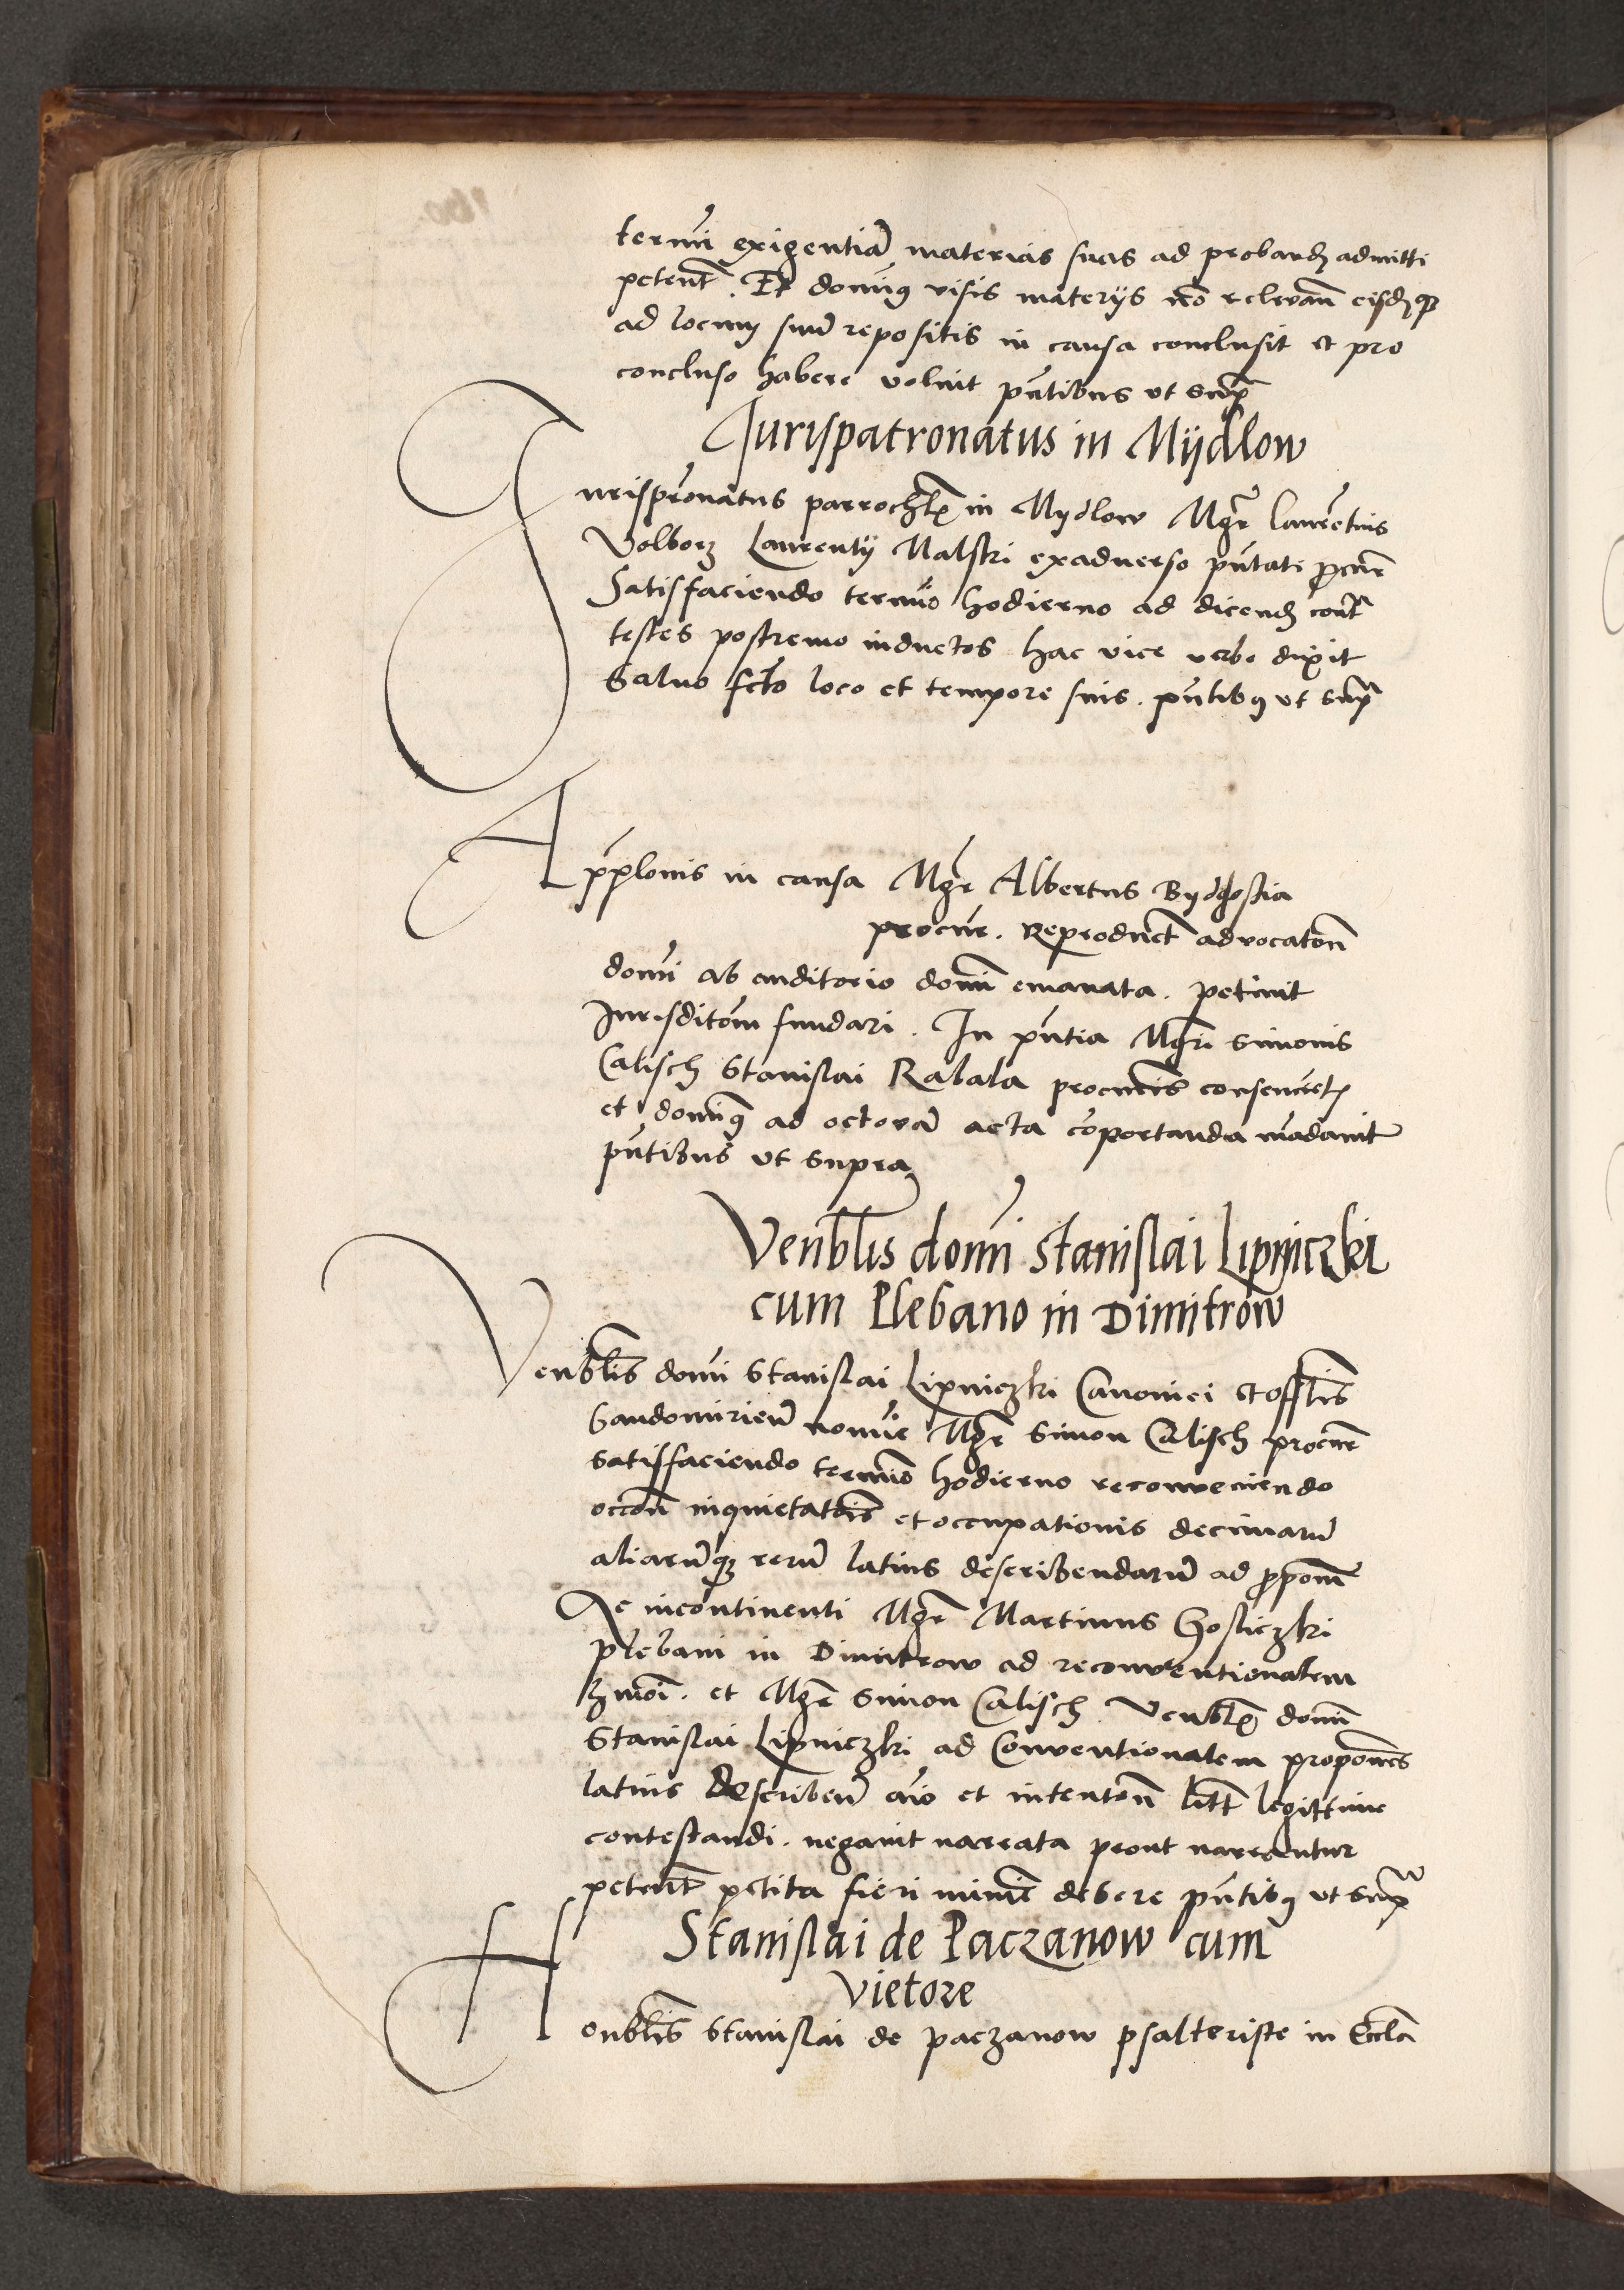 termi exigentia materias suas ad proband admitti
petent. Et domus visis materijs no relevan eisdqz
ad locum suu repositis in causa conclusit et pro
concluso habere voluit pntibus ut sup
Jurispatronatus in Mijdlow
Jurispronatus parrochle in Mydlow Mgr laurētius
Volborz Laurentij Malski exadverso pntati procur
Satisfaciendo termio hodierno ad dicend cont
testes postremo inductos hac vice verbo dixit
Salvo fcto loco et tempore suis. pntibus ut sup
App̄lonis in causa Mgr Albertus Bydgostia
procur. Reproduct advocaton
domi ab auditorio domi emanata. petivit
Jurisditōm fundari. In pntia Mgri Simonis
Calisch Stanislai Rabala procuris consencietis
et domius ad octova acta coportanda madavit
pntibus ut supra
Venblis domi Stanislai Lipniczki
cum Plebano in Dimitrow
Venblis domi Stanislai Lipniczki Canonici et offlis
Sandomirien nomie Mgr Simon Calisch procur
satisfaciendo termio hodierno reconveniendo
occon inquietatois et occupationis decimaru
aliaruqz reru latius describendaru ad propom
Ac incontinenti Mgr Martinus Gosliczki
plebani in Dimitrow ad reconventionalem
et Mgr Simon Calisch Venblis domi
Stanislai Lipniczki ad Conventionalem propones
latius describen aio et intenton litt legittime
contestandi. negavit narrata prout narrantur
petent petita fieri minie debere pntibus ut sup
Stanislai de Paczanow cum
vietore
Honblis Stanislai de paczanow psalteriste in Eccla